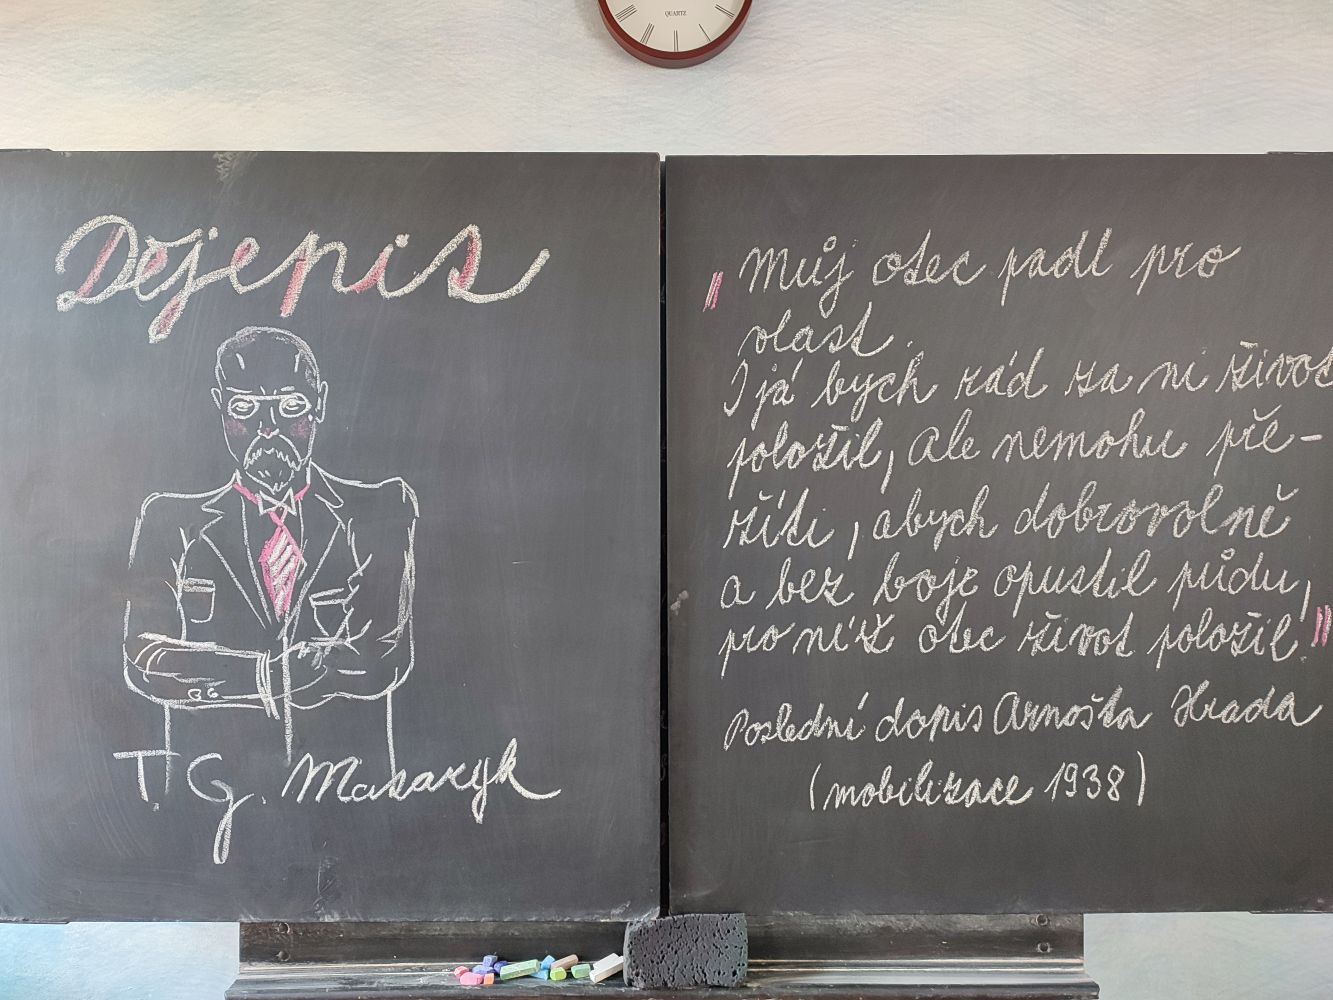 QUARTZ
Dějepis
T. G. Masaryk
„Můj otec padl pro
vlast.
I já bych rád za ni život
položil, ale nemohu pře-
žíti, abych dobrovolně
a bez boje opustil půdu,
pro níž otec život položil."
Poslední dopis Arnošta Hrada
(mobilizace 1938)